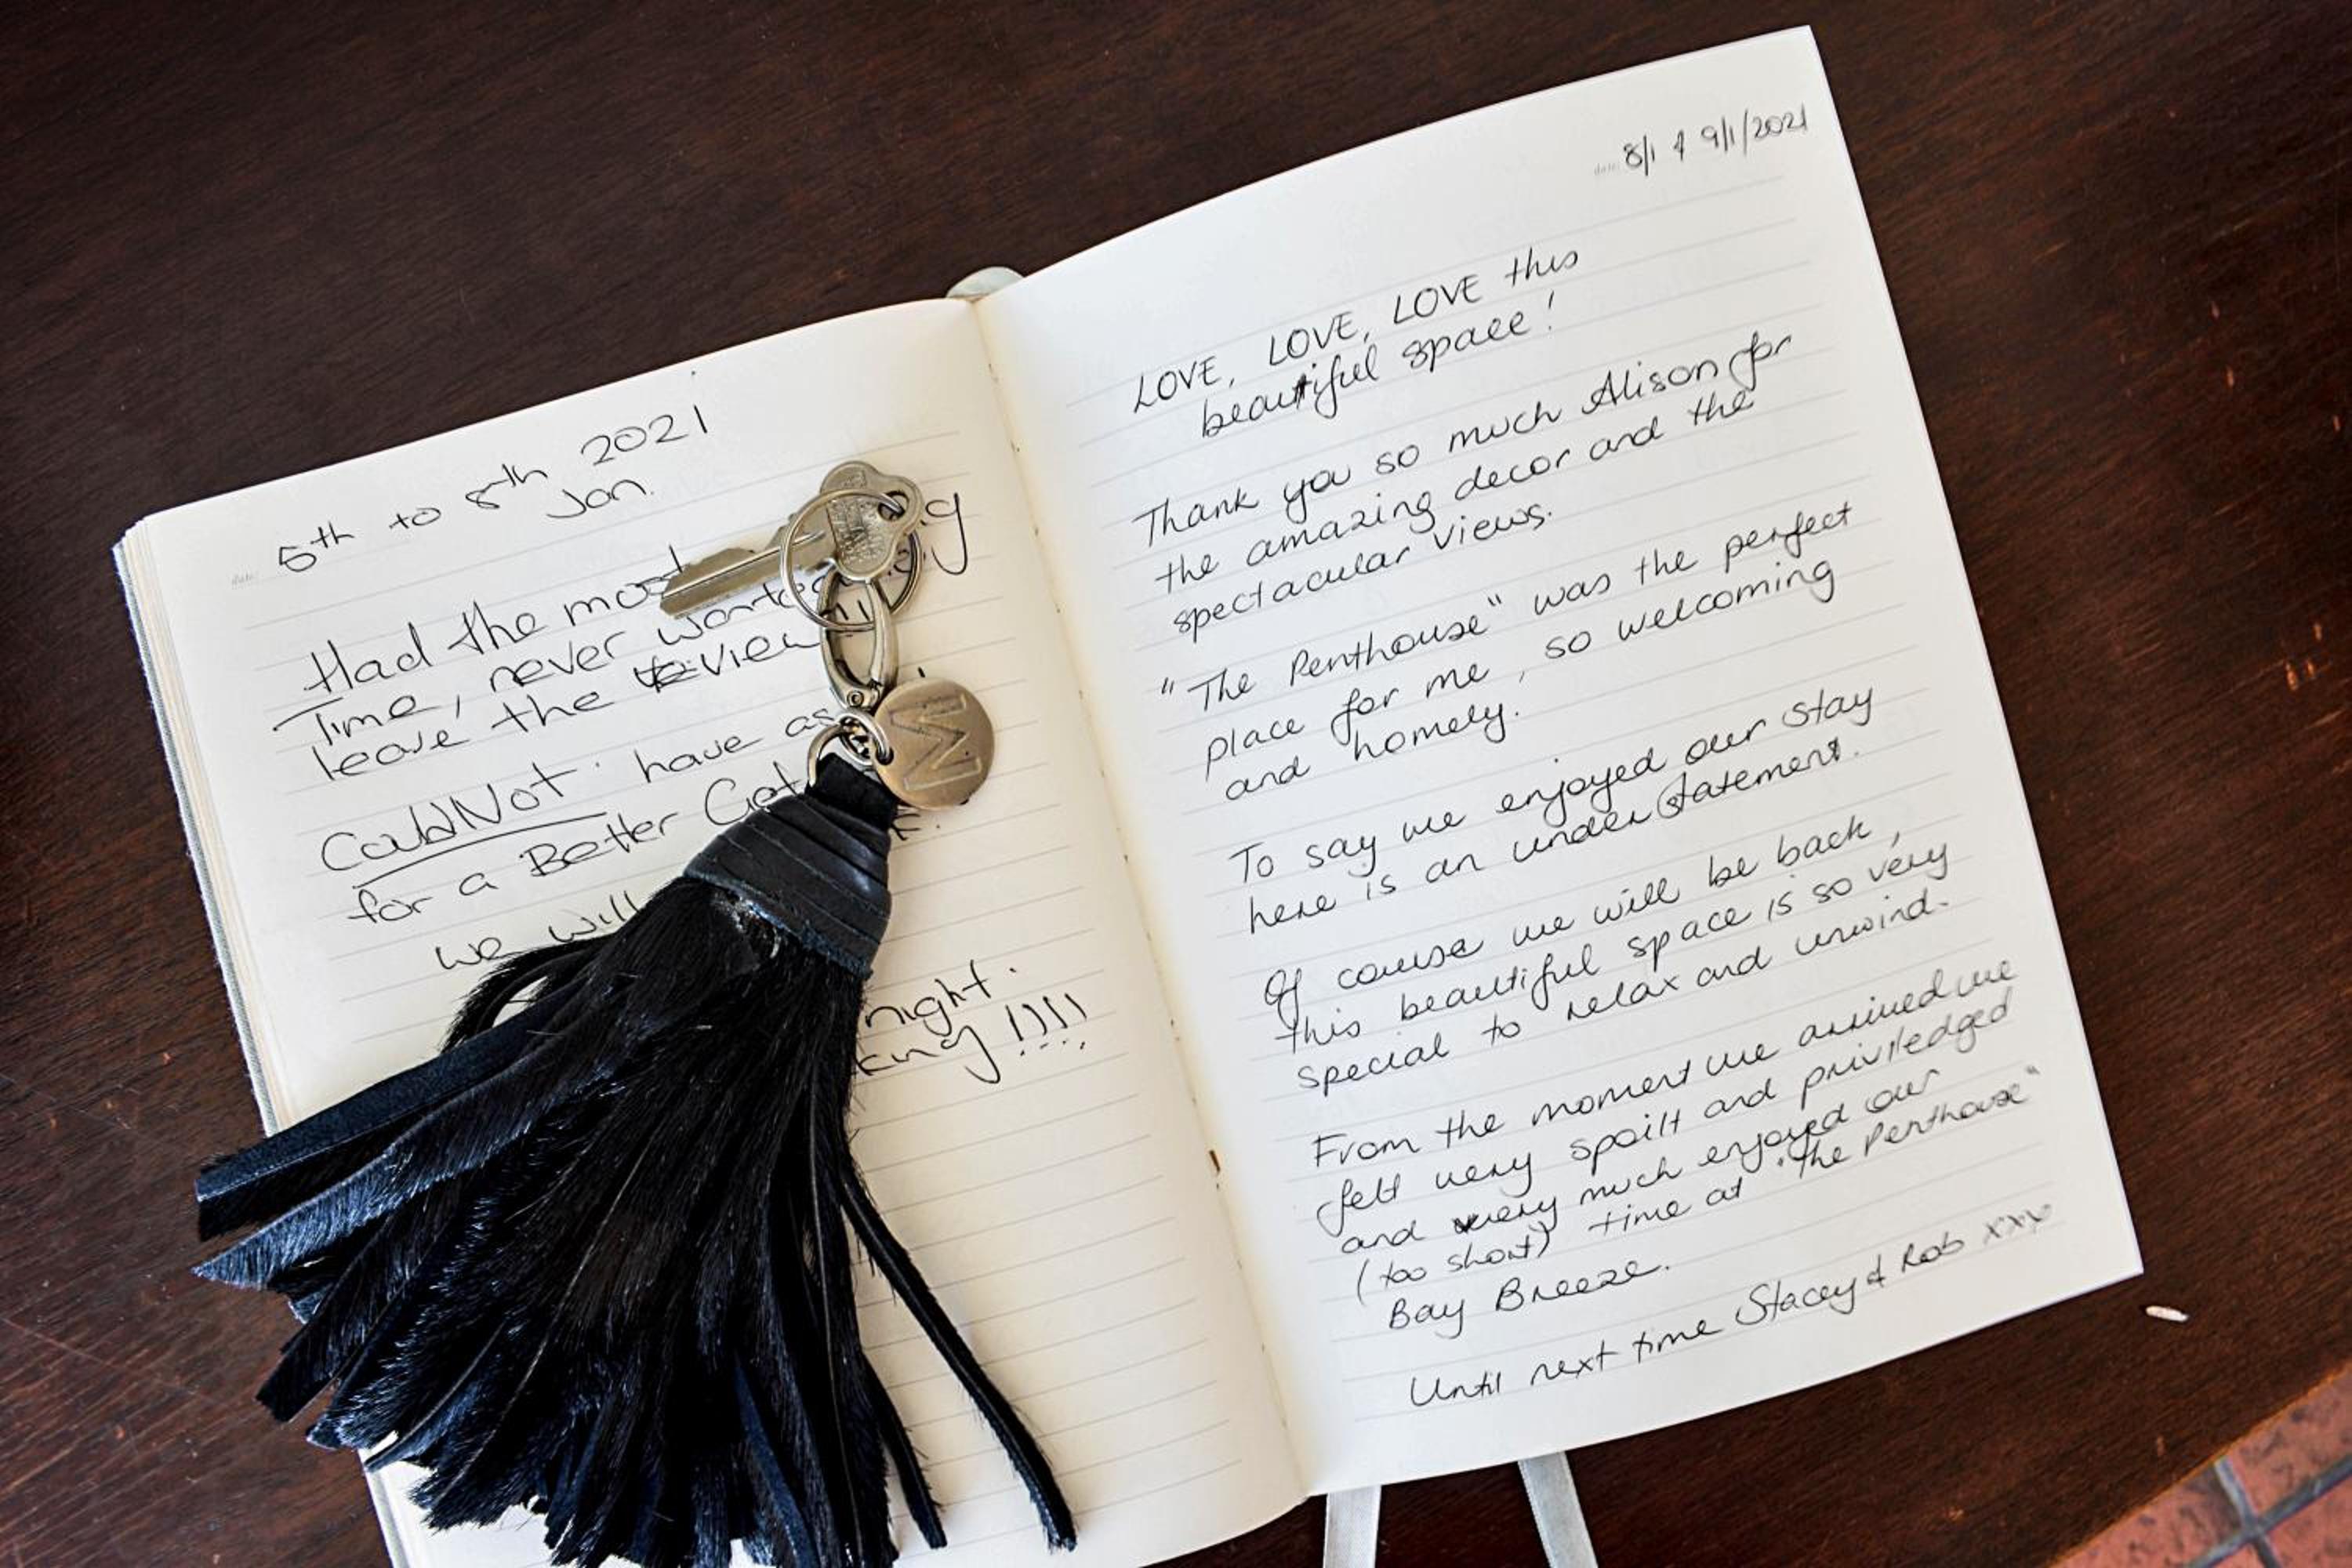 date:
5th to 8th 2021
Jan.
Had the most
Time, never wanted
leave the view
Could Not have as
for a Better Get
we will
night.
king !!!!
M
date: 8/1 & 9/1/2021
LOVE, LOVE, LOVE this
beautiful space!
Thank you so much Alison for
the amazing decor and the
spectacular views.
"The Penthouse" was the perfect
place for me, so welcoming
and homely.
To say we enjoyed our stay
here is an understatement.
Of course we will be back,
this beautiful space is so very
special to relax and unwind.
From the moment we arrived we
felt very spoilt and priviledged
and very much enjoyed our
(too short) time at "the Penthouse"
Bay Breeze.
Until next time Stacey & Rob xxx